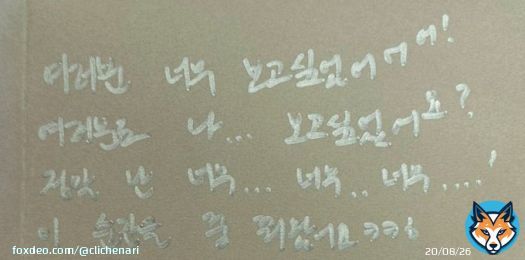 여러분 너무 보고싶었어어어!
여러분도 나... 보고싶었어요?
정말 난 너무... 너무.. 너무 ....!
이 순간을 ㅋㅋㅋ
foxdeo.com/@clichenari
20/08/26